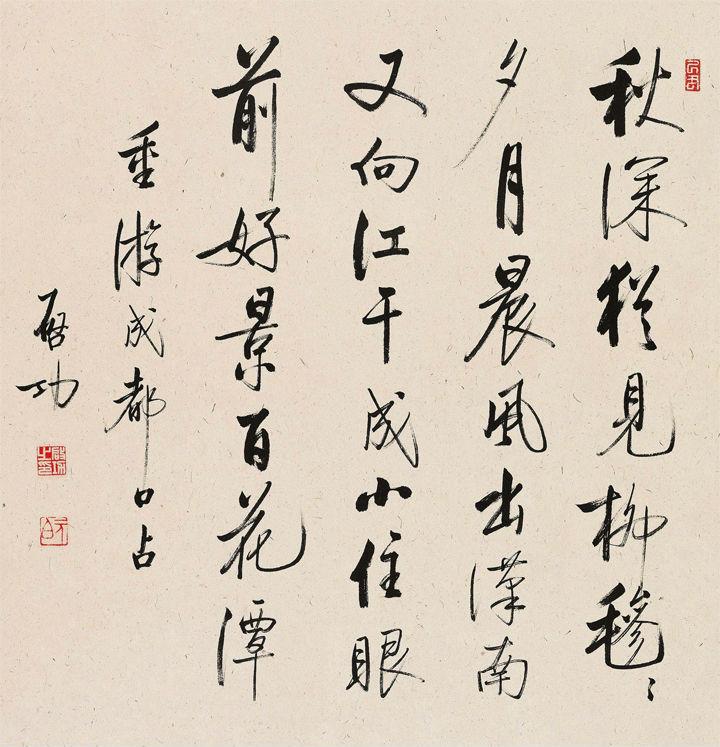 秋深猶見柳毿〻
夕月晨風出漢南
又向江干成小住眼
前好景百花潭
重游成都口占
启功